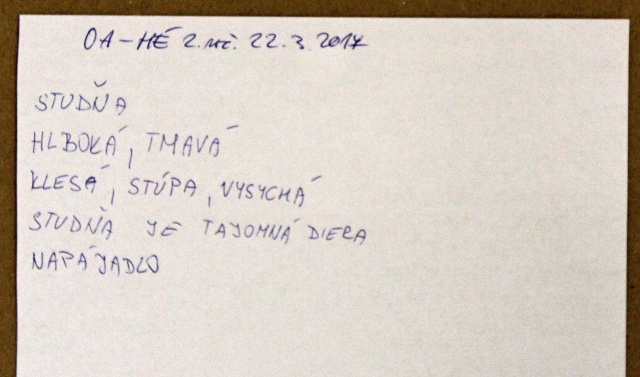 OA-HÉ 2.roč. 22.3.2017
STUDŇA
HLBOKÁ, TMAVÁ
KLESÁ, STÚPA, VYSYCHÁ
STUDŇA JE TAJOMNÁ DIERA
NAPÁJADLO